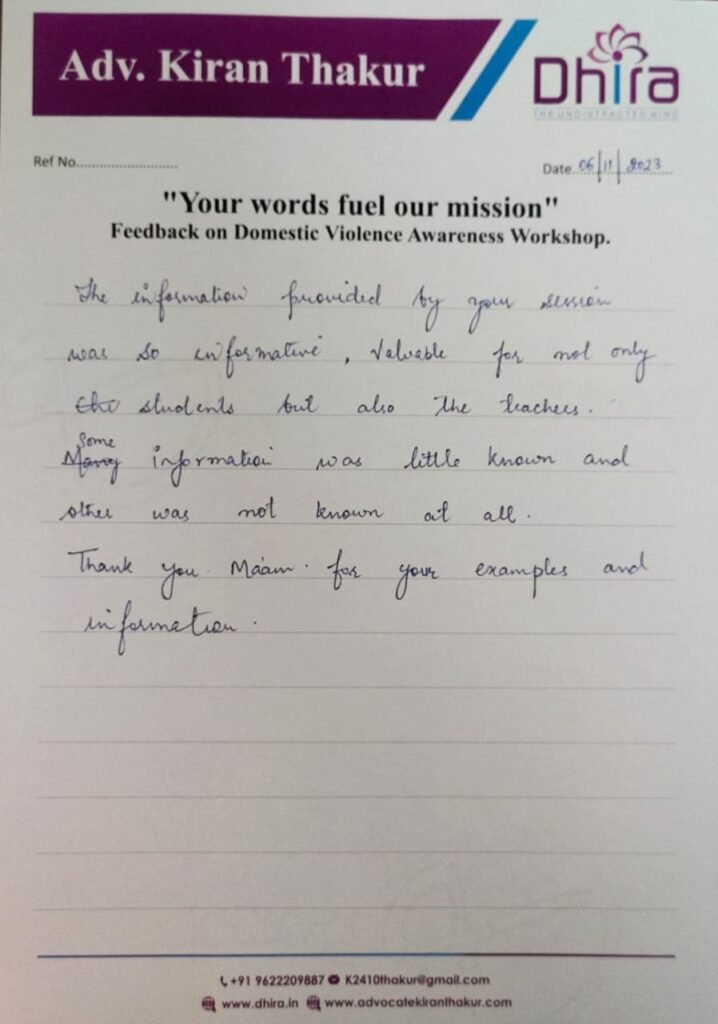 Adv. Kiran Thakur
Dhira
THE UNDISTRACTED MIND
Ref No............................
Date. 06/11/2023
"Your words fuel our mission"
Feedback on Domestic Violence Awareness Workshop.
The information provided by your session
was so informative, valuable for not only
the students but also the teachers.
Some
Many information was little known and
other was not known at all.
Thank you Ma'am. for your examples and
information.
+91 9622209887 K2410thakur@gmail.com
www.dhira.in www.advocatekiranthakur.com